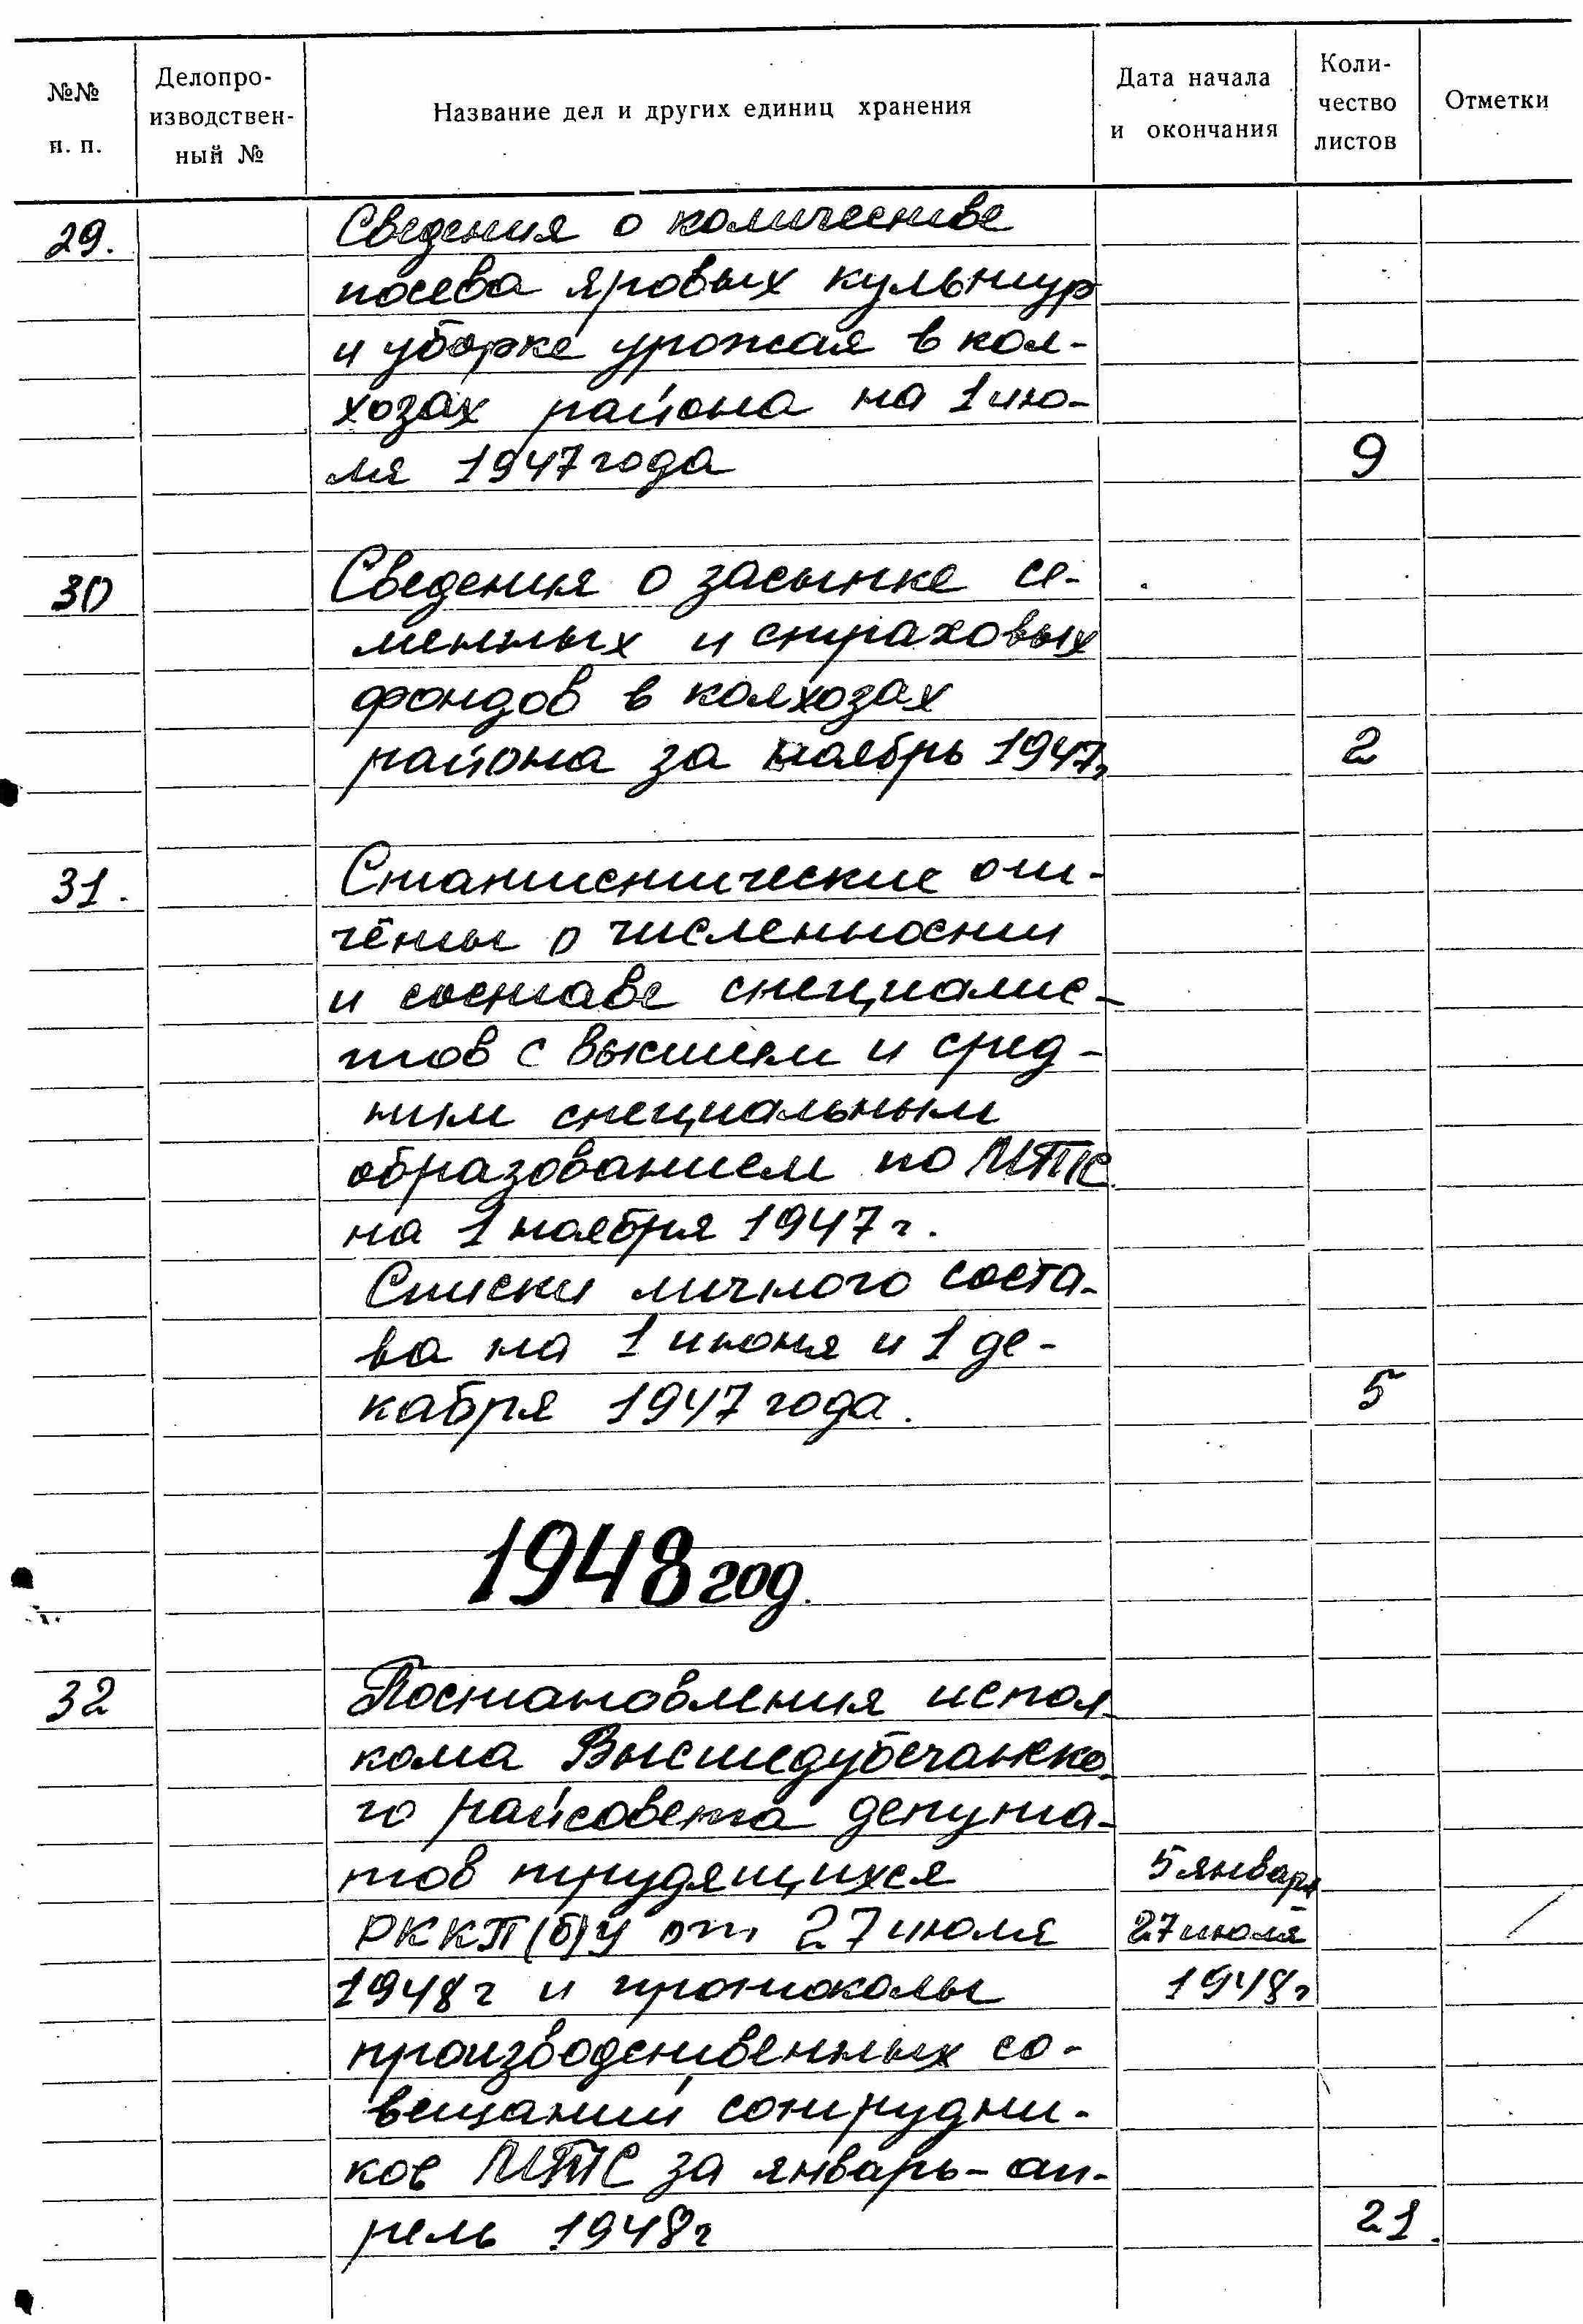 №№ п. п.
Делопроизводственный №
Название дел и других единиц хранения
Дата начала и окончания
Количество листов
Отметки
29. Сведения о количестве
посева яровых культур
и уборке урожая в кол-
хозах района на 1 ию-
ля 1947 года 9
30 Сведения о засыпке се-
менных и страховых
фондов в колхозах
района за ноябрь 1947г 2
31. Статистические от-
чёты о численности
и составе специалис-
тов с высшем и сред-
ним специальным
образованием по МТС
на 1 ноября 1947 г.
Списки личного соста-
ва на 1 июня и 1 де-
кабря 1947 года. 5
1948 год.
32 Постановления испол-
кома Вышедубечанско-
го райсовета депута-
тов трудящихся 5 января
РККП(б)У от 27 июля 27 июля
1948г и протоколы 1948г
производственных со-
вещаний сотрудни-
ков МТС за январь-ап-
рель 1948г 21.